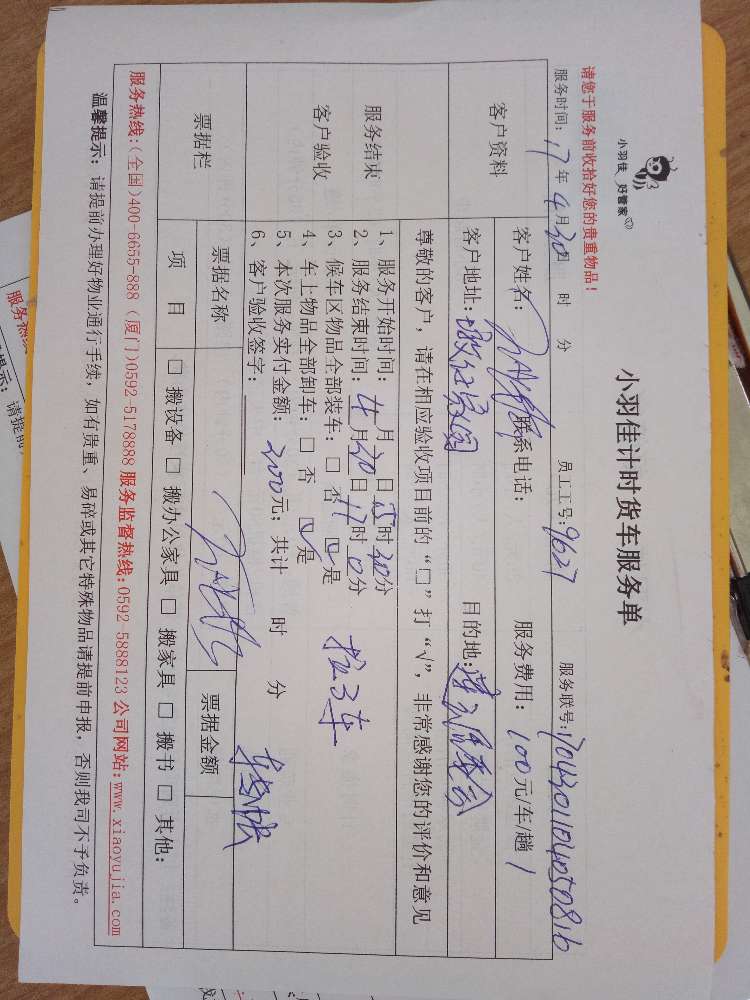 小羽佳 好管家
小羽佳计时货车服务单
请您于服务前收拾好您的贵重物品!
服务时间: 17 年 4 月 30 日 时 分 员工工号: 9627 服务联号: 170430110405081b
客户资料
客户姓名: 联系电话: 服务费用: 100 元/车/趟 1
客户地址: 目的地:
服务结束
客户验收
尊敬的客户，请在相应验收项目前的“□”打“√”，非常感谢您的评价和意见
1、服务开始时间: 4 月 30 日 15 时 30 分
2、服务结束时间: 月 日 17 时 0 分
3、候车区物品全部装车: □ 否 □ 是
4、车上物品全部卸车: □ 否 □ 是
5、本次服务实付金额: 200 元; 共计 时 分
6、客户验收签字:
票据栏
票据名称 票据金额
项 目 □ 搬设备 □ 搬办公家具 □ 搬家具 □ 搬书 □ 其他:
服务热线:(全国)400-6655-888 (厦门)0592-5178888 服务监督热线:0592-5888123 公司网站:www.xiaoyujia.com
温馨提示: 请提前办理好物业通行手续, 如有贵重、易碎或其它特殊物品请提前申报, 否则我司不予负责。
服务热线
请提前